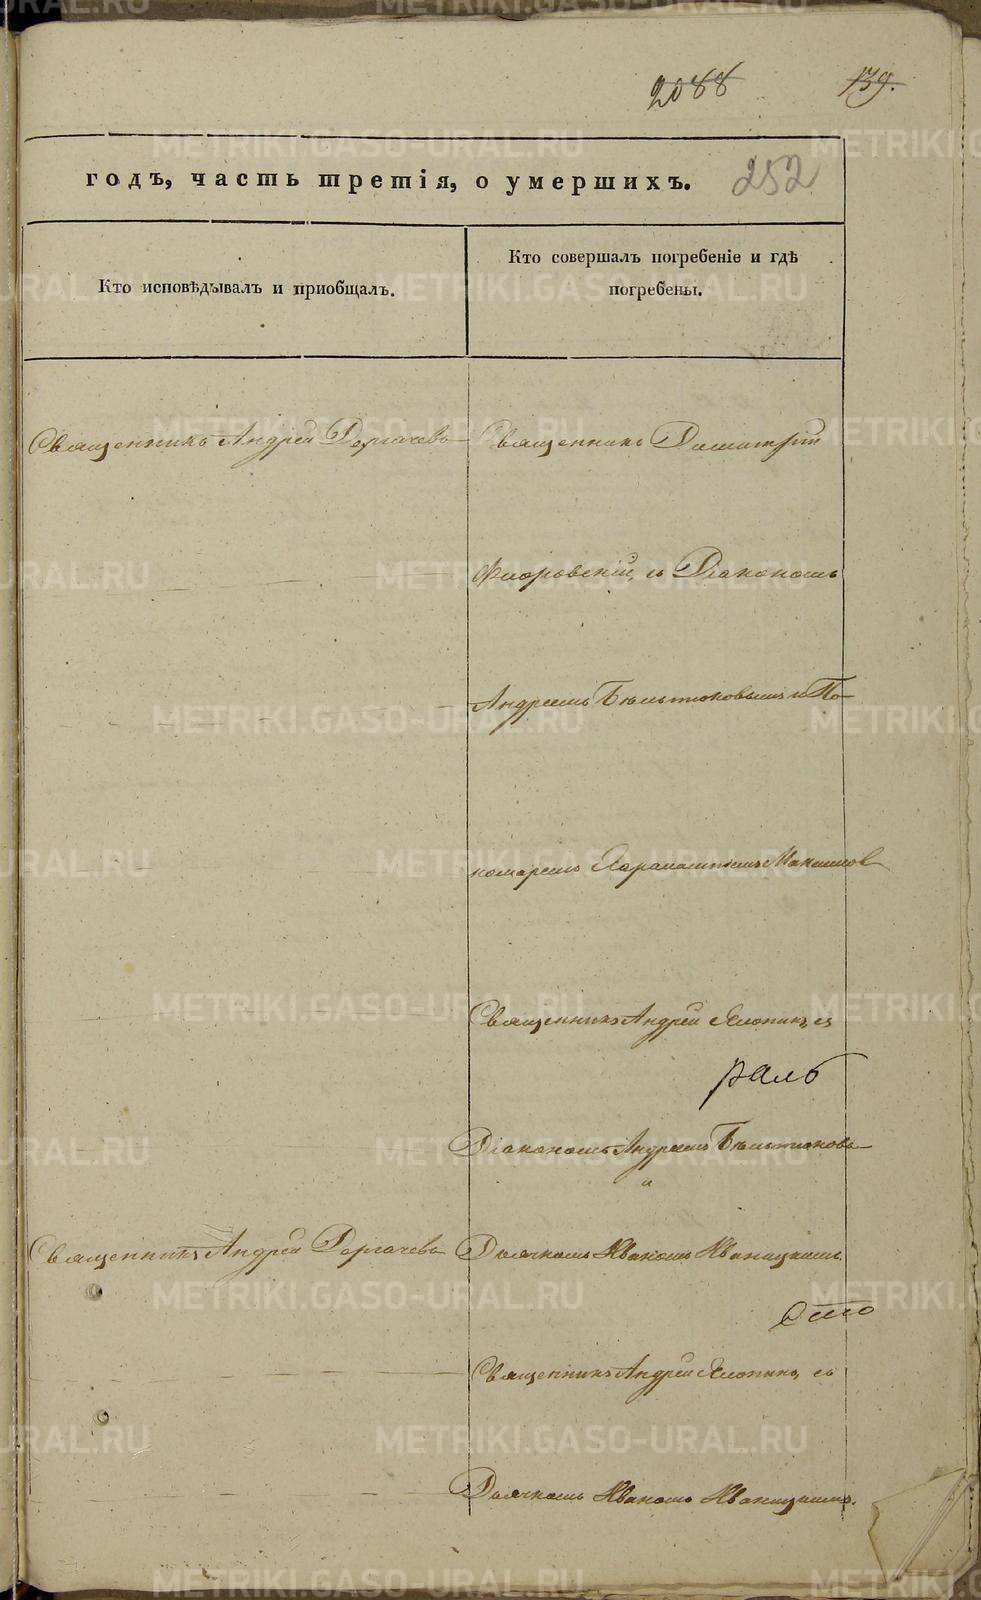 2088 139.
годъ, часть третія, о умершихъ. 252
Кто исповѣдывалъ и приобщалъ.
Кто совершалъ погребеніе и гдѣ
погребены.
Священникъ Андрей Дергачевъ
Священникъ Димитрій
Флоровскій, съ Діакономъ
Андреемъ Бѣльтюковымъ и По-
номаремъ Харалампіемъ Макшиов
Священникъ Андрей Хлопинъ, съ
Діакономъ Андреемъ Бѣльтюковъ
и
Священникъ Андрей Дергачевъ
Дьячкомъ Иваномъ Иваницкимъ.
Священникъ Андрей Хлопинъ, съ
Дьячкомъ Иваномъ Иваницкимъ.
METRIKI.GASO-URAL.RU